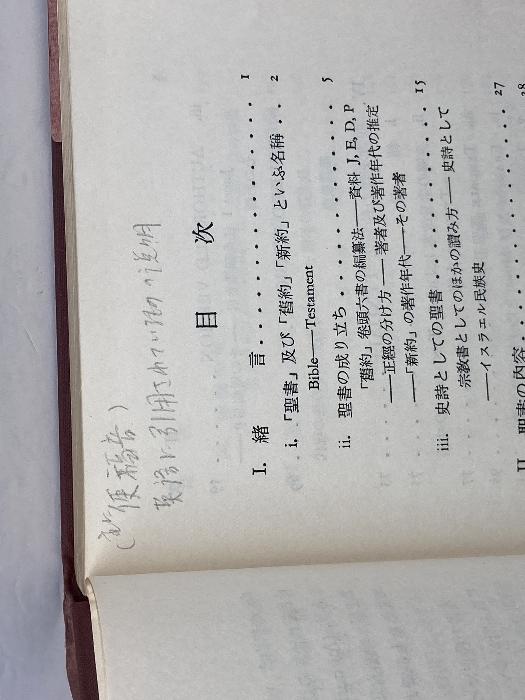 英語に引用されている の説明
目 次
I. 緒 言 . . . . . . . . . . . . . . . . . . . . 1
i. 「聖書」及び「舊約」「新約」といふ名稱 . . 2
Bible——Testament
ii. 聖書の成り立ち . . . . . . . . . . . . . . . 5
「舊約」卷頭六書の編纂法——資料 J, E, D, P
——正經の分け方——著者及び著作年代の推定
——「新約」の著作年代——その著者
iii. 史詩としての聖書 . . . . . . . . . . . . . . 15
宗教書としてのほかの讀み方——史詩として
——イスラエル民族史 27
II 聖書の内容 . . . . . . . . . . . . . . . . . 28